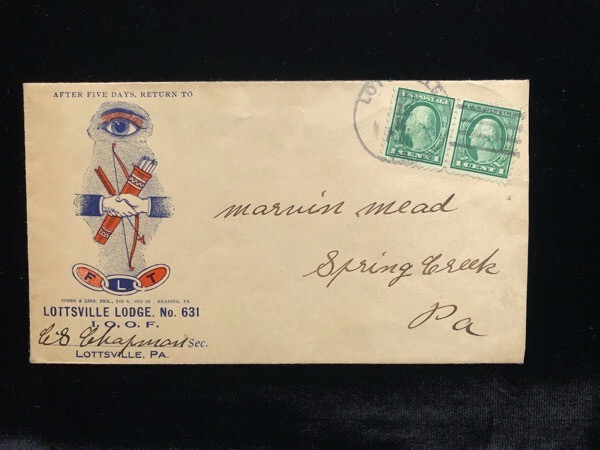 AFTER FIVE DAYS, RETURN TO
F L T
LOTTSVILLE LODGE, No. 631
I.O.O.F.
C S Chapman Sec.
LOTTSVILLE, PA.
U.S. POSTAGE
1 CENT 1
U.S. POSTAGE
1 CENT 1
Marvin Mead
Spring Creek
Pa